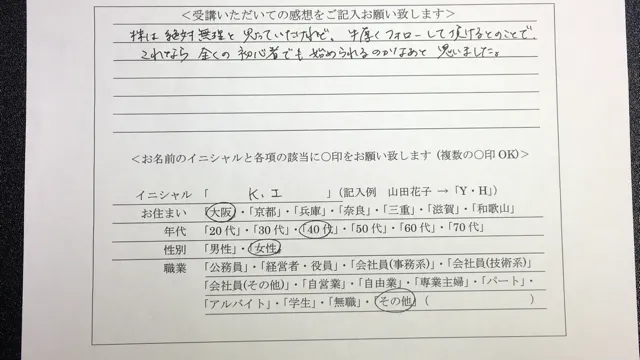 <受講いただいての感想をご記入お願い致します>
株は絶対無理と思っていたけれど、手厚くフォローして頂けるとのことで、
これなら全くの初心者でも始められるのかなあと思いました。
<お名前のイニシャルと各項の該当に〇印をお願い致します (複数の〇印OK)>
イニシャル 「 K.I 」(記入例 山田花子→「Y・H」)
お住まい 「大阪」・「京都」・「兵庫」・「奈良」・「三重」・「滋賀」・「和歌山」
年代 「20代」・「30代」・「40代」・「50代」・「60代」・「70代」
性別 「男性」・「女性」
職業 「公務員」・「経営者・役員」・「会社員(事務系)・「会社員(技術系)
「会社員(その他)」・「自営業」・「自由業」・「専業主婦」・「パート」・
「アルバイト」・「学生」・「無職」・「その他」( )